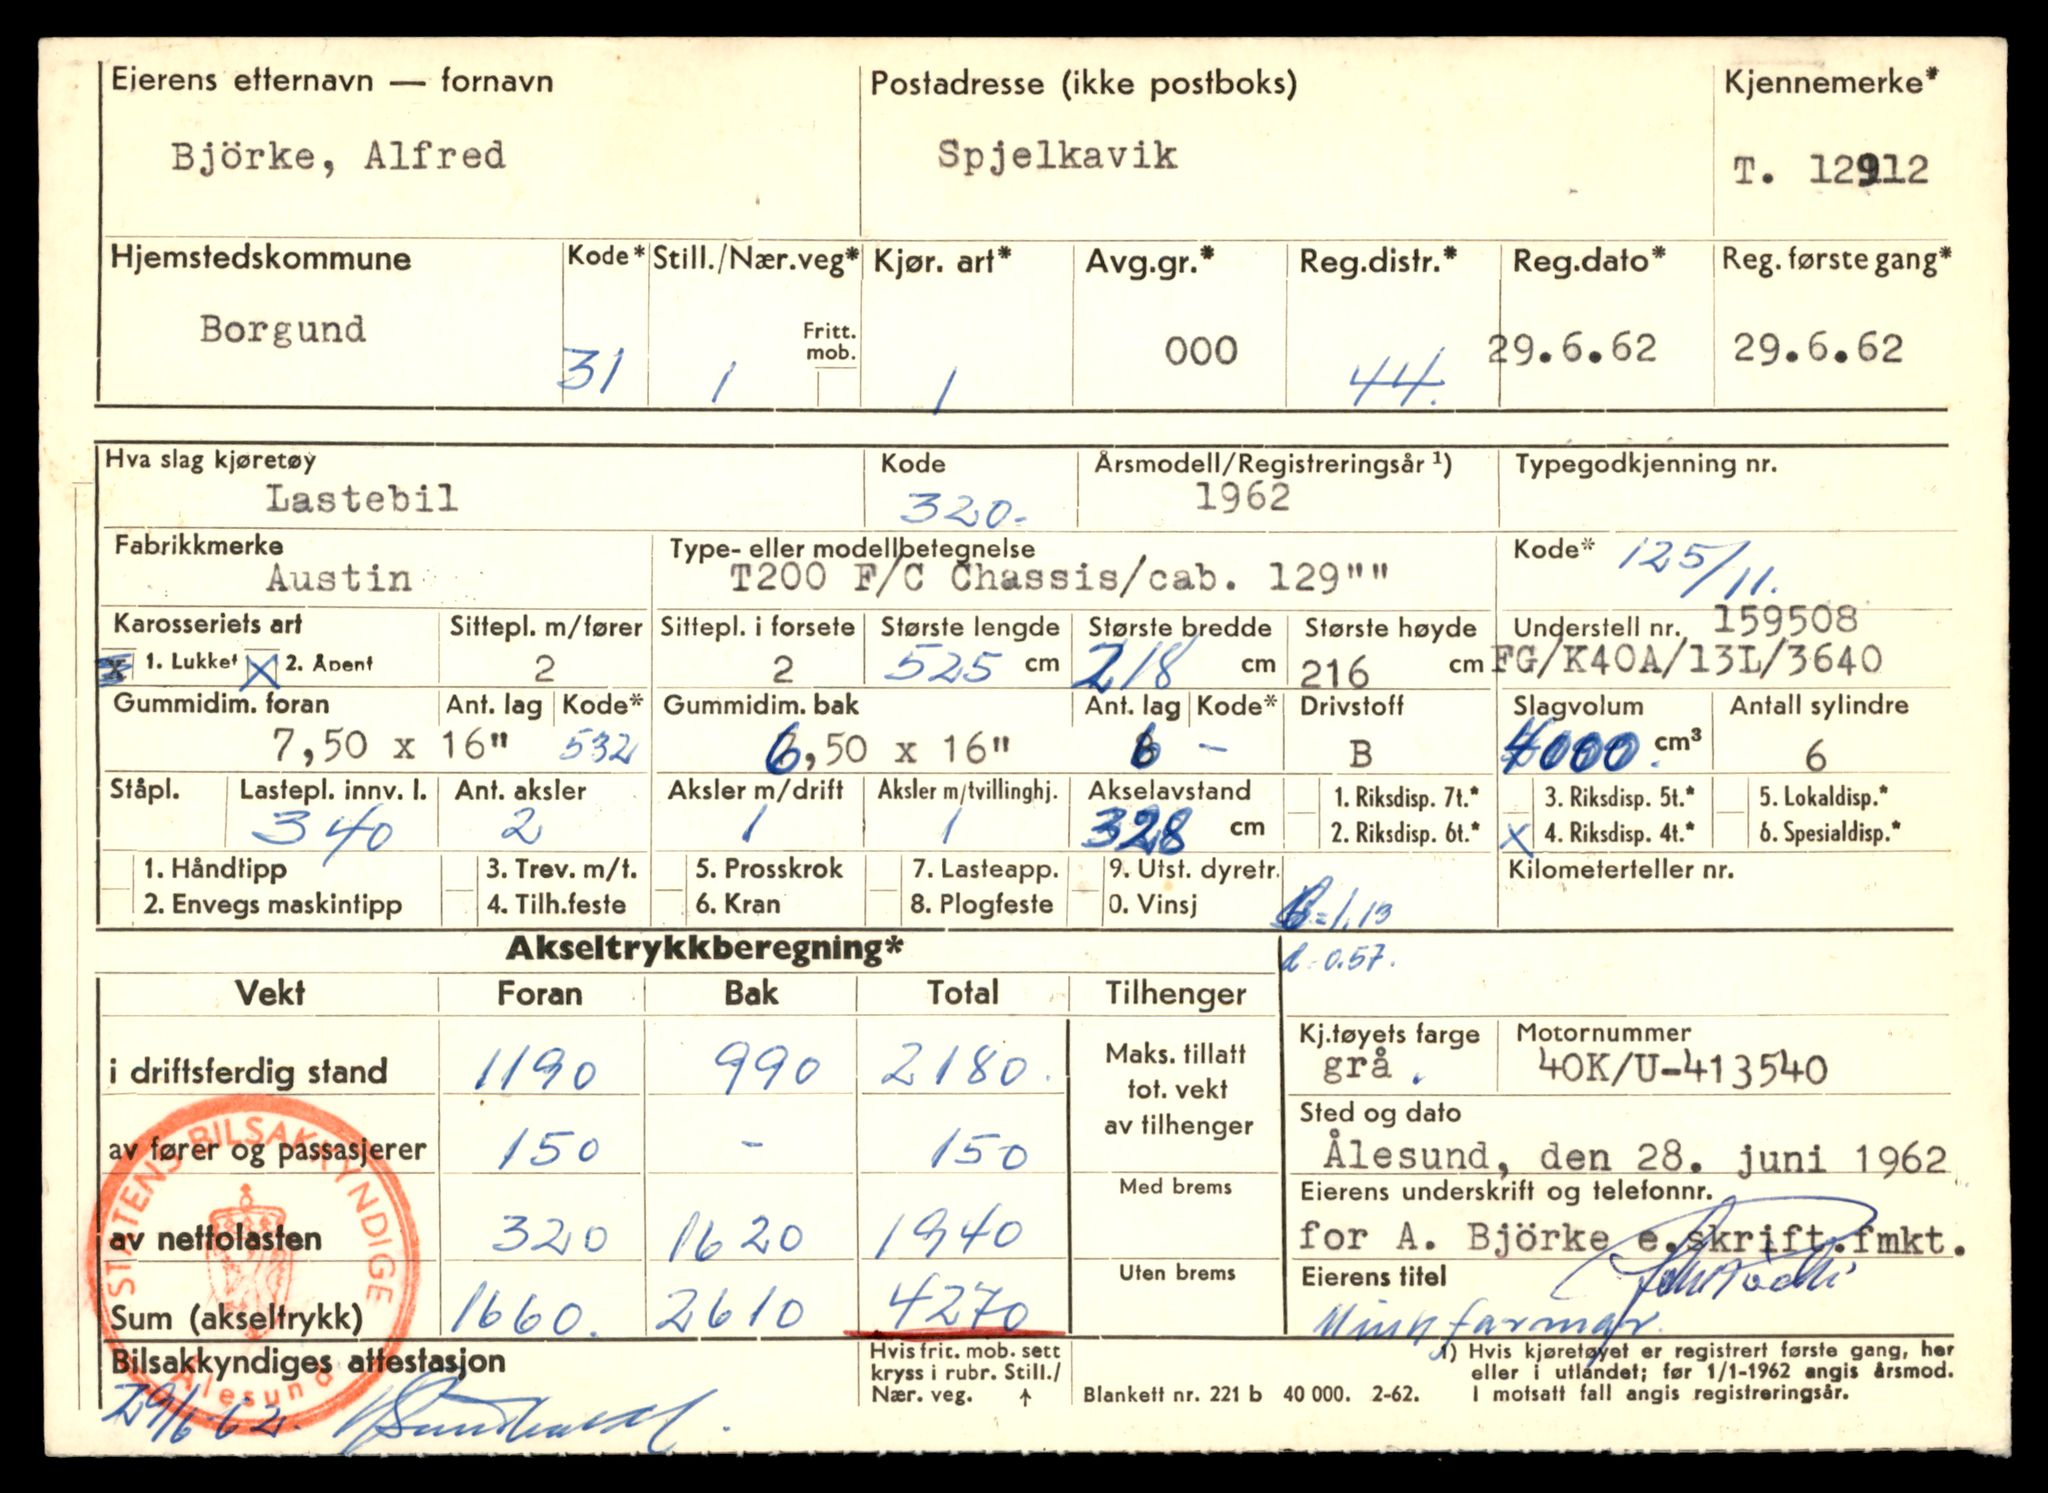 Eierens etternavn — fornavn Postadresse (ikke postboks) Kjennemerke*
Björke, Alfred Spjelkavik T. 12912
Hjemstedskommune Kode* Still./Nær.veg* Kjør. art* Avg.gr.* Reg.distr.* Reg.dato* Reg. første gang*
Borgund 31 1 Fritt. mob. 1 000 44. 29.6.62 29.6.62
Hva slag kjøretøy Kode Årsmodell/Registreringsår ¹) Typegodkjenning nr.
Lastebil 320- 1962
Fabrikkmerke Type- eller modellbetegnelse Kode* 125/11.
Austin T200 F/C Chassis/cab. 129""
Karosseriets art Sittepl. m/fører Sittepl. i forsete Største lengde Største bredde Største høyde Understell nr. 159508
x 1. Lukket X 2. Åpent 2 2 525 cm 218 cm 216 cm FG/K40A/13L/3640
Gummidim. foran Ant. lag Kode* Gummidim. bak Ant. lag Kode* Drivstoff Slagvolum Antall sylindre
7,50 x 16" 532 6,50 x 16" 6 - B 4000. cm³ 6
Ståpl. Lastepl. innv. l. Ant. aksler Aksler m/drift Aksler m/tvillinghj. Akselavstand 1. Riksdisp. 7t.* 3. Riksdisp. 5t.* 5. Lokaldisp.*
340 2 1 1 328 cm 2. Riksdisp. 6t.* X 4. Riksdisp. 4t.* 6. Spesialdisp.*
1. Håndtipp 3. Trev. m/t. 5. Prosskrok 7. Lasteapp. 9. Utst. dyretr. Kilometerteller nr.
2. Envegs maskintipp 4. Tilh.feste 6. Kran 8. Plogfeste 0. Vinsj =1,13
Akseltrykkberegning* 0.57.
Vekt Foran Bak Total Tilhenger
i driftsferdig stand 1190 990 2180. Maks. tillatt tot. vekt av tilhenger
Kj.tøyets farge Motornummer
grå . 40K/U-413540
Sted og dato
av fører og passasjerer 150 - 150 Ålesund, den 28. juni 1962
Med brems Eierens underskrift og telefonnr.
av nettolasten 320 1620 1940 for A. Björke e.skrift.fmkt.
Uten brems Eierens titel
Sum (akseltrykk) 1660. 2610 4270 Minkfarmar.
STATENS BILSAKKYNDIGE
Ålesund
Bilsakkyndiges attestasjon
29/6-62.
Hvis frit. mob. sett
kryss i rubr. Still./
Nær. veg. ↑ Blankett nr. 221 b 40 000. 2-62.
¹) Hvis kjøretøyet er registrert første gang, her
eller i utlandet; før 1/1-1962 angis årsmod.
I motsatt fall angis registreringsår.